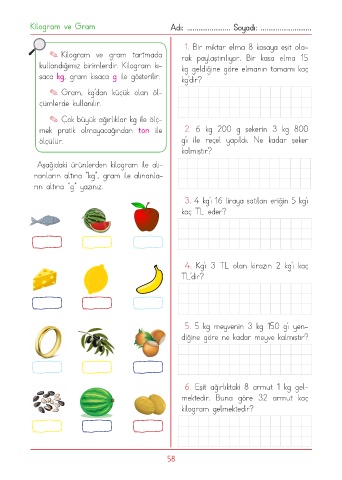 Kilogram ve Gram
Adı: .................... Soyadı: ........................
Kilogram ve gram tartmada
kullandığımız birimlerdir. Kilogram kı-
saca kg, gram kısaca g ile gösterilir.
Gram, kg'dan küçük olan öl-
çümlerde kullanılır.
Çok büyük ağırlıklar kg ile ölç-
mek pratik olmayacağından ton ile
ölçülür.
Aşağıdaki ürünlerden kilogram ile alı-
nanların altına "kg", gram ile alınanla-
rın altına "g" yazınız.
1. Bir miktar elma 8 kasaya eşit ola-
rak paylaştırılıyor. Bir kasa elma 15
kg geldiğine göre elmanın tamamı kaç
kg'dır?
2. 6 kg 200 g şekerin 3 kg 800
g'ı ile reçel yapıldı. Ne kadar şeker
kalmıştır?
3. 4 kg'ı 16 liraya satılan eriğin 5 kg'ı
kaç TL eder?
4. Kg'ı 3 TL olan kirazın 2 kg'ı kaç
TL'dir?
5. 5 kg meyvenin 3 kg 150 g'ı yen-
diğine göre ne kadar meyve kalmıştır?
6. Eşit ağırlıktaki 8 armut 1 kg gel-
mektedir. Buna göre 32 armut kaç
kilogram gelmektedir?
58